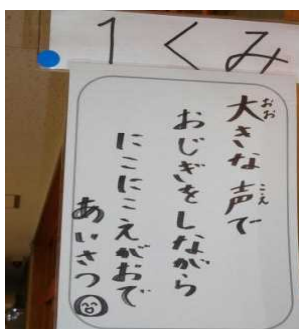 1くみ
大きな声で
おじぎをしながら
にこにこえがおで
あいさつ